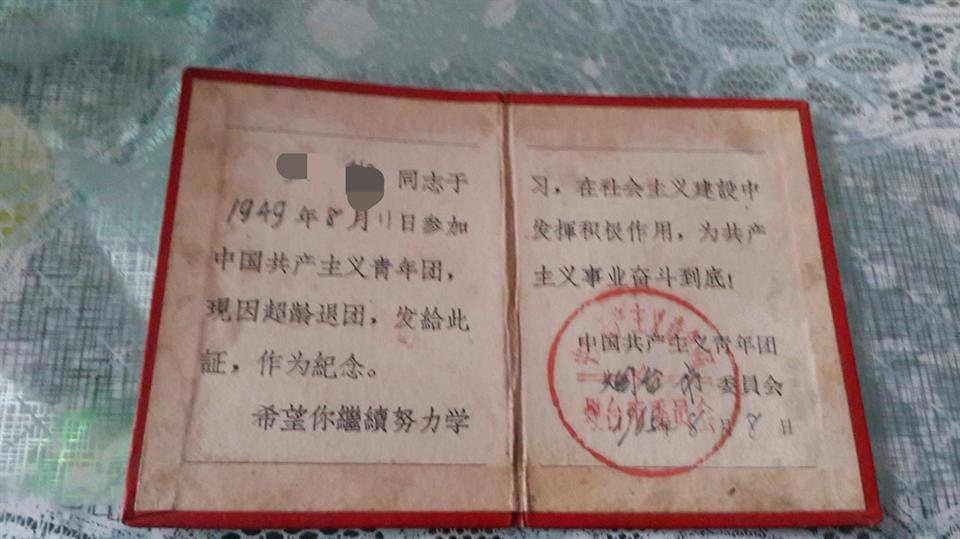 同志于
1949年8月11日参加
中国共产主义青年团,
現因超龄退团,发給此
証,作为紀念。
希望你繼續努力学
习,在社会主义建設中
发揮积极作用,为共产
主义事业奋斗到底!
中国共产主义青年团
烟台市委員会
年8月8日
烟台市委员会